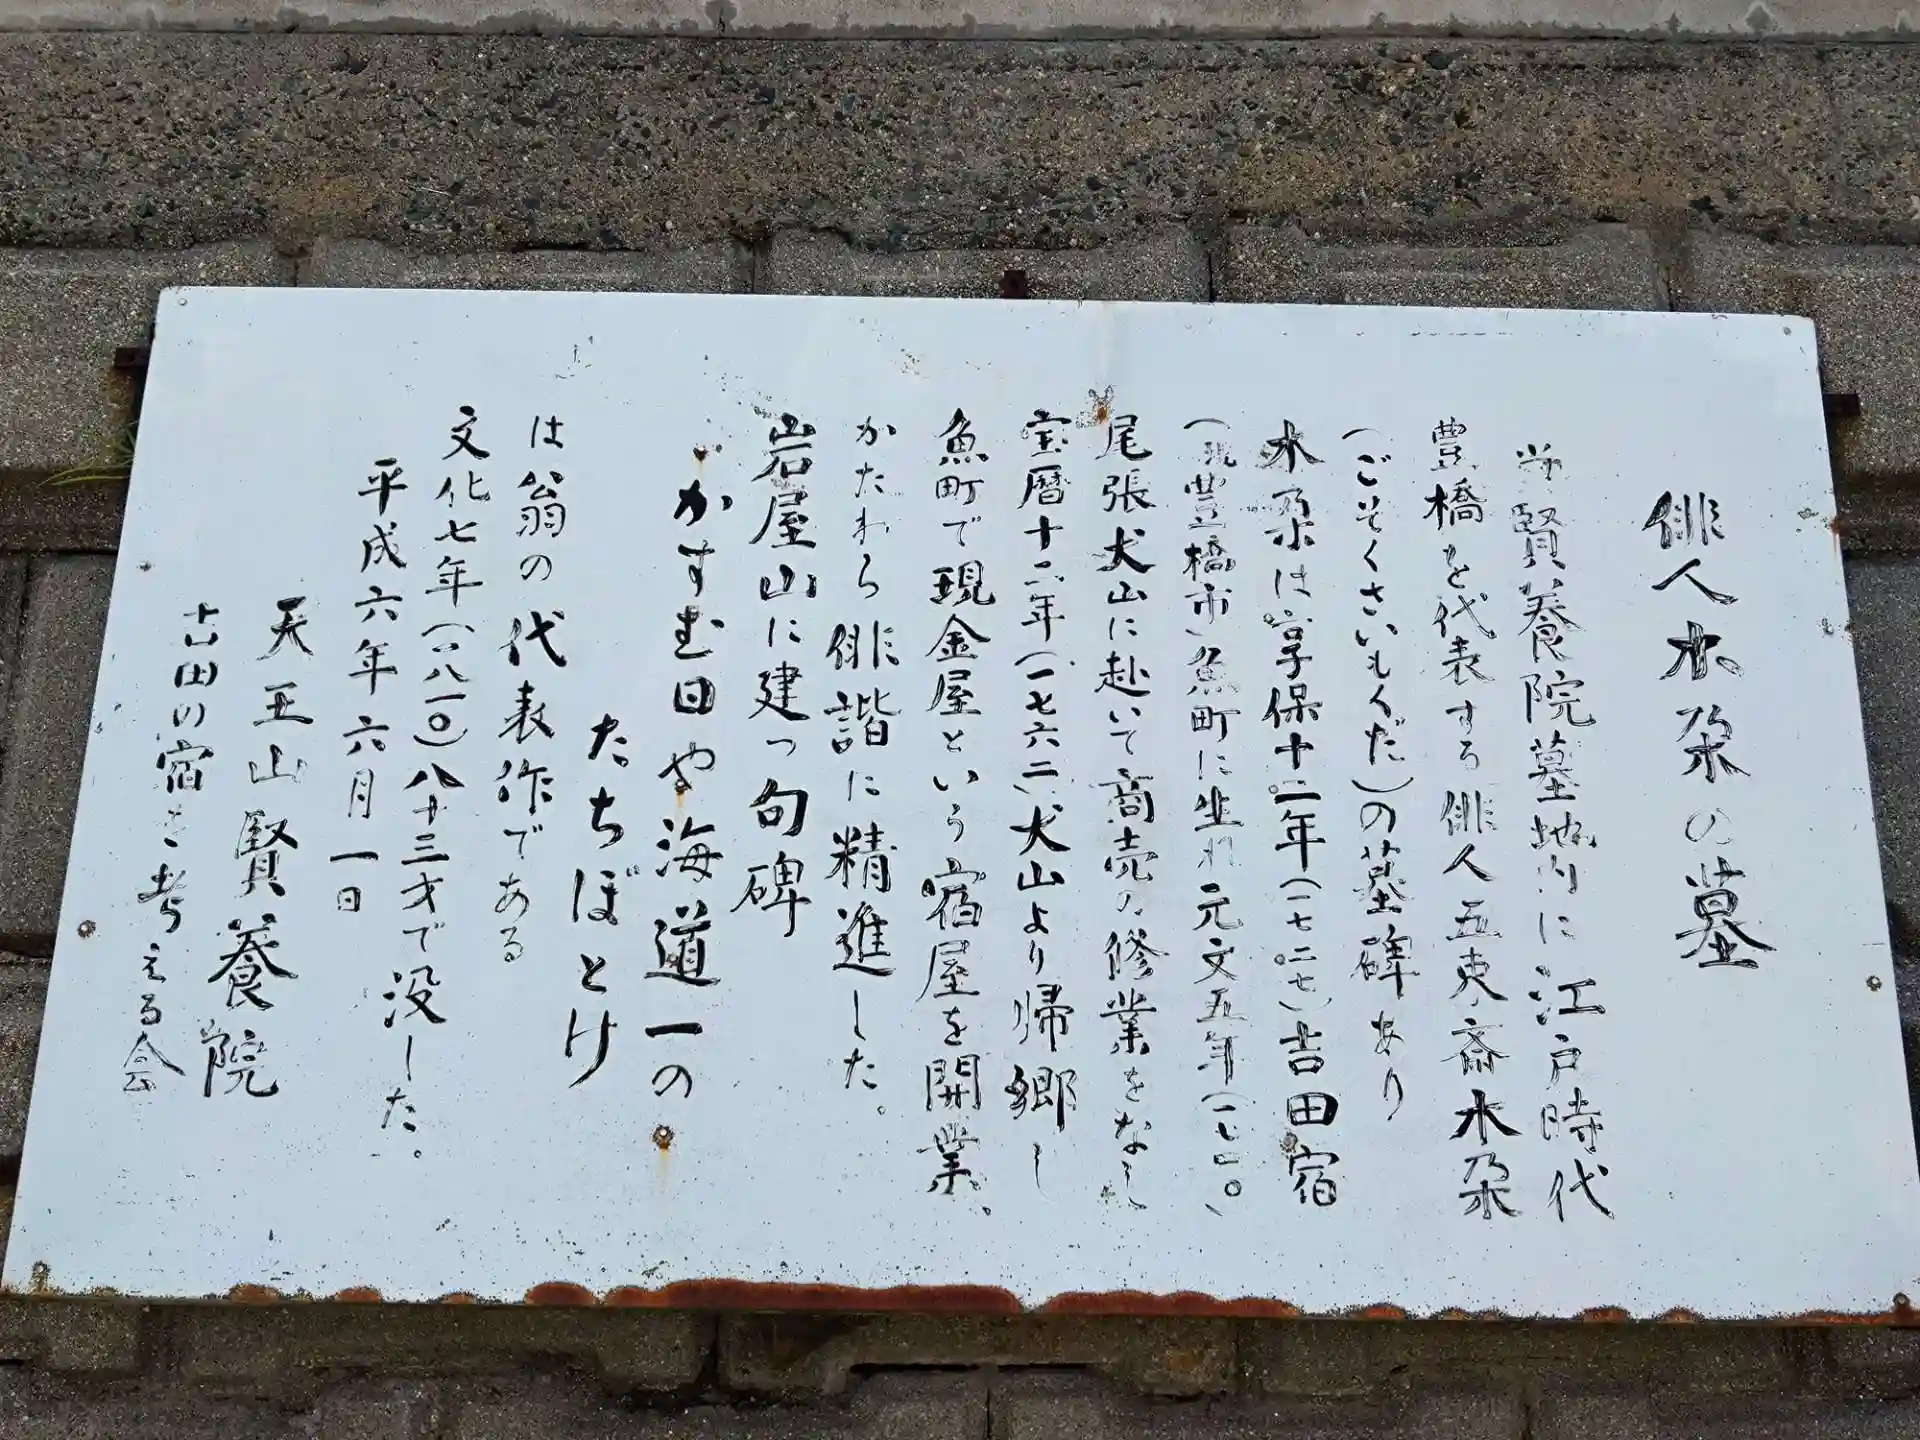 俳人木朶の墓
当賢養院墓地内に江戸時代
豊橋を代表する俳人五束斎木朶
(ごそくさいもくだ)の墓碑あり
木朶は享保十二年(一七二七)吉田宿
(現豊橋市)魚町に生れ元文五年(一七四〇)
尾張犬山に赴いて商売の修業をなし
宝暦十二年(一七六二)犬山より帰郷し
魚町で現金屋という宿屋を開業。
かたわら俳諧に精進した。
岩屋山に建つ句碑
かすむ日や海道一の
たちぼとけ
は翁の代表作である
文化七年(一八一〇)八十三才で没した。
平成六年六月一日
天王山賢養院
吉田の宿を考える会